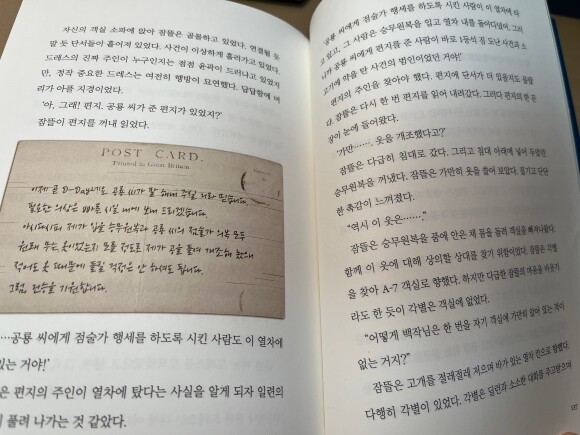 자신의 객실 소파에 앉아 잠뜰은 골몰하고 있었다. 연결될 듯
말 듯 단서들이 흩어져 있었다. 사건이 이상하게 흘러가고 있었다.
드레스의 진짜 주인이 누구인지는 점점 윤곽이 드러나고 있었지
만, 정작 중요한 드레스는 여전히 행방이 묘연했다. 답답함에 머
리가 아플 지경이었다.
'아, 그래! 편지. 공룡 씨가 준 편지가 있었지?'
잠뜰이 편지를 꺼내 읽었다.
POST CARD.
Printed in Great Britain.
이제 곧 D-Day네요. 공룡 씨가 잘 해내 주실 거라 믿습니다.
필요한 의상은 빠른 시일 내에 보내 드리겠습니다.
아시다시피 제가 입을 승무원복과 공룡 씨의 점술가 의복 모두
원래 무슨 옷이었는지 모를 정도로 제가 공을 들여 개조해 놨으니
적어도 옷 때문에 들킬 걱정은 안 하셔도 됩니다.
그럼, 건승을 기원합니다.
…공룡 씨에게 점술가 행세를 하도록 시킨 사람도 이 열차에
있는 거야!'
은 편지의 주인이 열차에 탔다는 사실을 알게 되자 일련의
풀려 나가는 것 같았다.
'공룡 씨에게 점술가 행세를 하도록 시킨 사람이 이 열차에 타
고 있고, 그 사람은 승무원복을 입고 열차 내를 돌아다닌다. 그러
니까 공룡 씨에게 편지를 준 사람이 바로 1등석 짐 도난 사건과 소
고기에 약을 탄 사건의 범인이었던 거야!'
편지의 주인을 찾아야 했다. 편지에 단서가 더 있을지도 몰랐
다. 잠뜰은 다시 한 번 편지를 읽어 내려갔다. 그러다 편지의 한 문
장이 눈에 들어왔다.
'가만……. 옷을 개조했다고?'
잠뜰은 다급히 침대로 갔다. 그리고 침대 아래에 넣어 두었던
승무원복을 꺼냈다. 잠뜰은 가만히 옷을 쓸어 보았다. 질기고 단단
한 촉감이 느껴졌다.
"역시 이 옷은……."
잠뜰은 승무원복을 품에 안은 채 몸을 돌려 객실을 빠져나왔다.
함께 이 옷에 대해 상의할 상대를 찾기 위함이었다. 잠뜰은 각별
을 찾아 A-7 객실로 향했다. 하지만 다급한 잠뜰의 마음을 비웃기
라도 한 듯이 각별은 객실에 없었다.
"어떻게 백작님은 한 번을 자기 객실에 가만히 앉아 있는 적이
없는 거지?"
잠뜰은 고개를 절레절레 저으며 바가 있는 열차 칸으로 향했다.
다행히 각별이 있었다. 각별은 딜런과 소소한 대화를 주고받으며